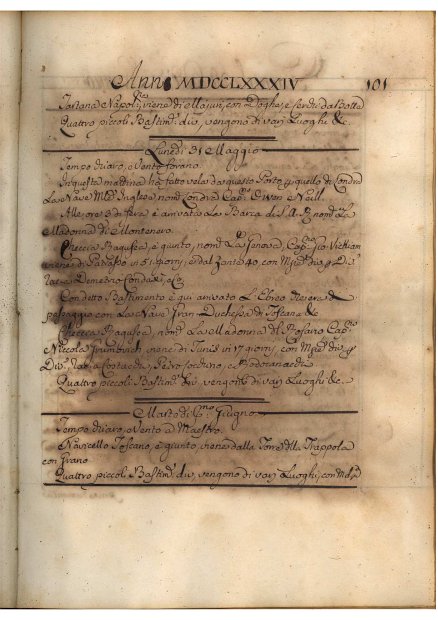 Anno MDCCLXXXIV 101
Tartana Napol:na, viene di con Doghe, e
Quattro piccoli Bastim:ti div, vengono di varj Luoghi &c.
Lunedi 31 Maggio
Tempo chiaro, e Vento forano.
In questa mattina ha fatto vela da questo Porto p quello di Londra
La Nave M:e Inglese nom:a Londra Cap:no Owen e Neill.
Alle ore 3 di sera è arrivata la Barca di S.A.R. nom:a La
Madonna di Montenero.
Checcia Ragusea, è giunto, nom:a La Cap:no Gio:
viene di in 51 giorni, e dal Zante 40, con M div: p
Demetrio
Con detto Bastimento è qui arivato L'Ebreo
passaggio con La Nave Gran Duchessa di Toscana &
Checcia Ragusea, nom:a La Madonna del Rosario Cap:no
Niccola viene di Tunis in 17 giorni, con M div: p
Div: Rab: a e
Quattro piccoli Bastim:ti div, vengono di varj Luoghi &c.
Martedi P:mo Giugno
Tempo chiaro, e Vento a Maestro.
Navicello Toscano, è giunto, viene dalla Torre della Trappola
con Grano
Quattro piccol: Bastim:ti div, vengono di varj Luoghi, con